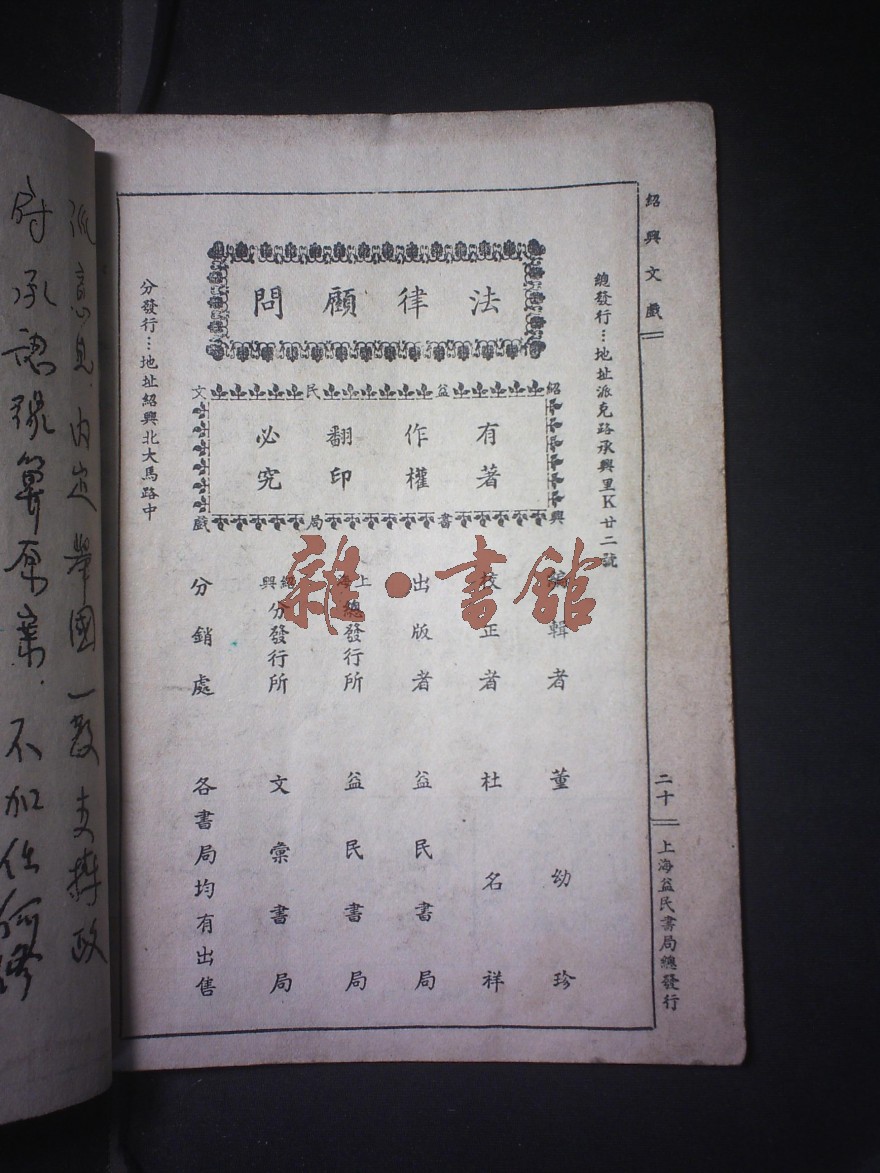 紹興文戲
二十
上海益民書局總發行
總發行：地址派克路承興里K廿二號
法律顧問
紹益民文
有著作權
翻印必究
興書局戲
編輯者 董幼珍
校正者 杜名祥
出版者 益民書局
上海總發行所 益民書局
紹興分發行所 文彙書局
分銷處 各書局均有出售
分發行：地址紹興北大馬路中
雜·書館
意見．內定舉國一致支持政
府承認預算原案．不加任何